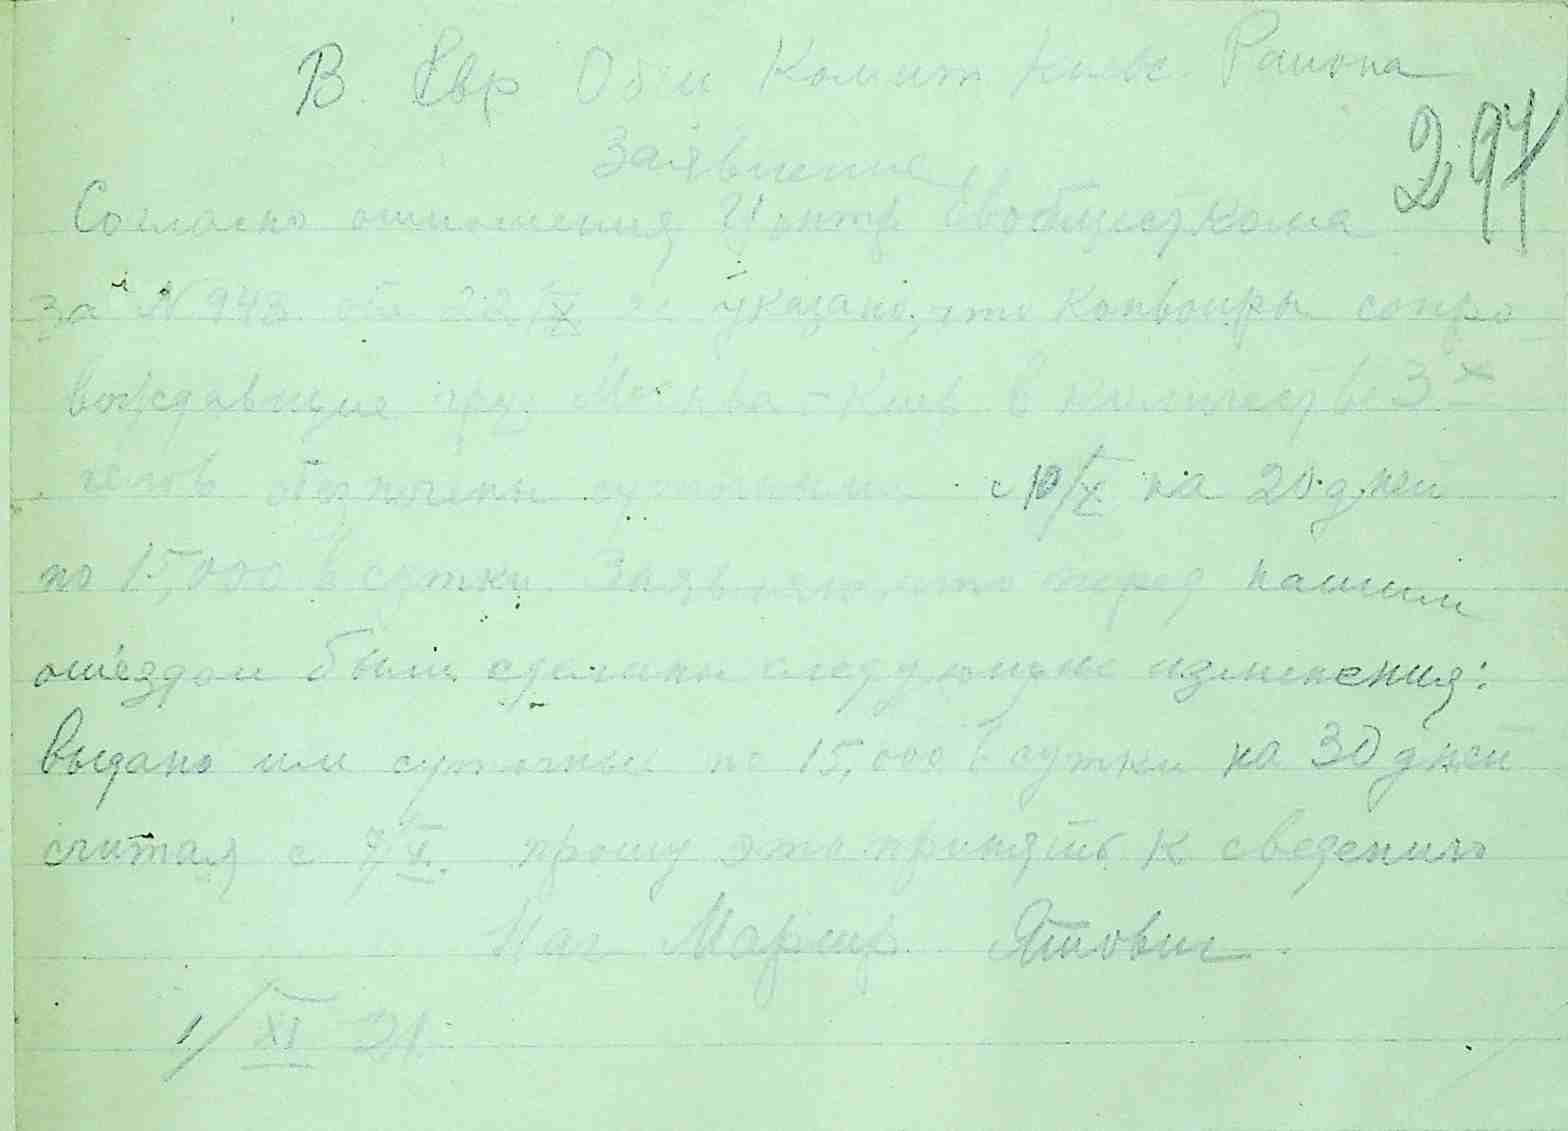 В. Евр Общ Комит Киевс. Района
297
Заявление
Согласно отношения Центр Евобщесткома
за N 943 от 22/X указано, что Конвоиры сопро
вождавшие груз Москва - Киев в количестве 3х
челов обеспечены суточными с 10/X на 20 дней
по 15,000 в сутки. Заявляю, что перед нашим
от'ездом были сделаны следующие изменения:
Выдано им суточные по 15,000 в сутки на 30 дней
считая с 7/X. прошу это принять к сведению
Нач Маршр.
1/XI 21